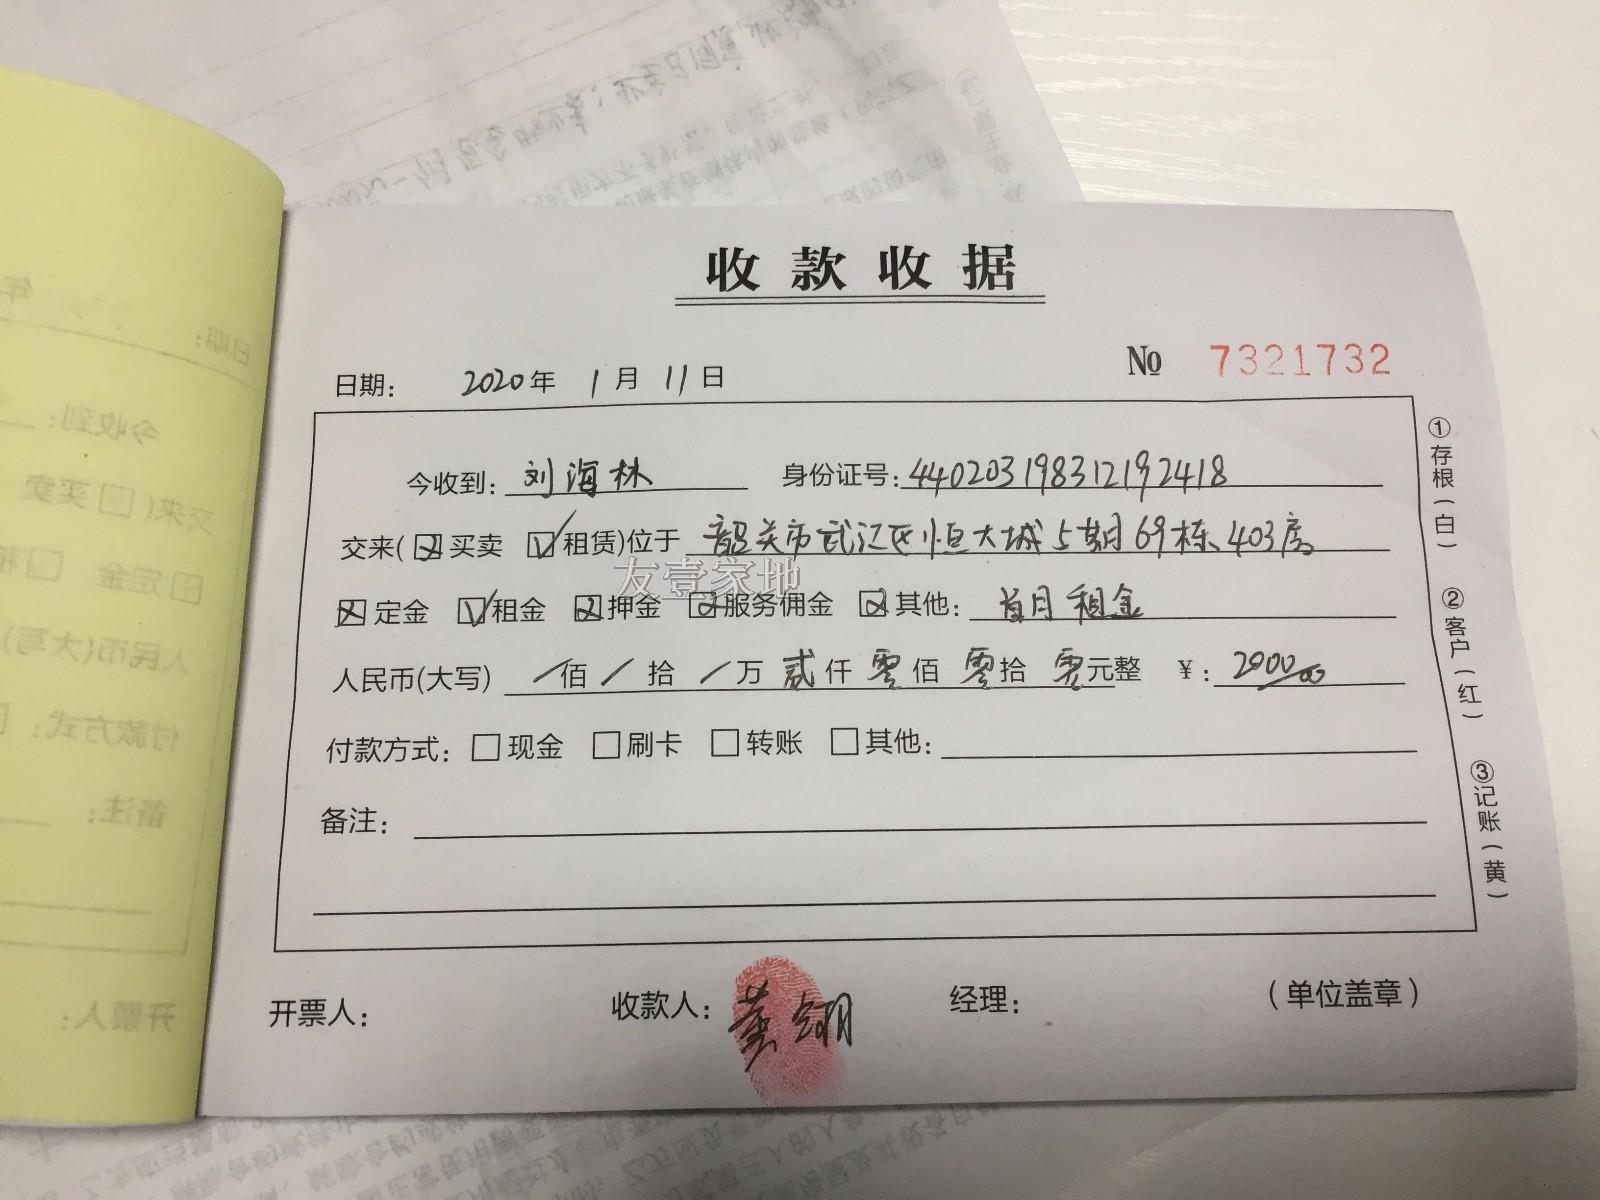 收款收据
№ 7321732
日期： 2020年 1月 11日
今收到：刘海林 身份证号：440203198312192418
交来(☒买卖 ☑租赁)位于 韶关市武江区恒大城5期69栋403房
友壹家地
☒定金 ☑租金 ☒押金 ☒服务佣金 ☒其他：首月租金
人民币(大写) /佰/拾/万贰仟零佰零拾零元整 ¥：2000.00
付款方式：□现金 □刷卡 □转账 □其他：
备注：
开票人： 收款人： 经理： （单位盖章）
①存根(白)
②客户(红)
③记账(黄)
日期： 年
今收到：
交来( 买卖
定金 租
人民币(大写)
付款方式：
备注：
开票人：